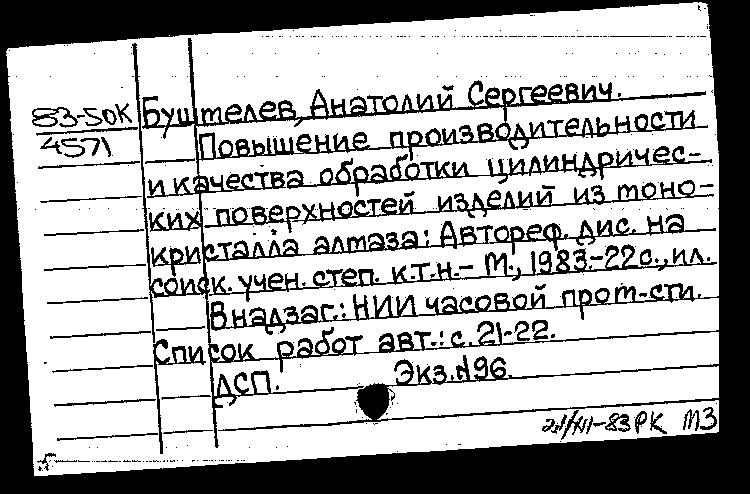 83-50К Буштелев, Анатолий Сергеевич.
4571 Повышение производительности
и качества обработки цилиндричес-
ких поверхностей изделий из моно-
кристалла алмаза: Автореф. дис. на
соиск. учен. степ. к.т.н.- М., 1983.-22с., ил.
В надзаг.: НИИ часовой пром-сти.
Список работ авт.: с. 21-22.
ДСП. Экз. №96.
РК МЗ